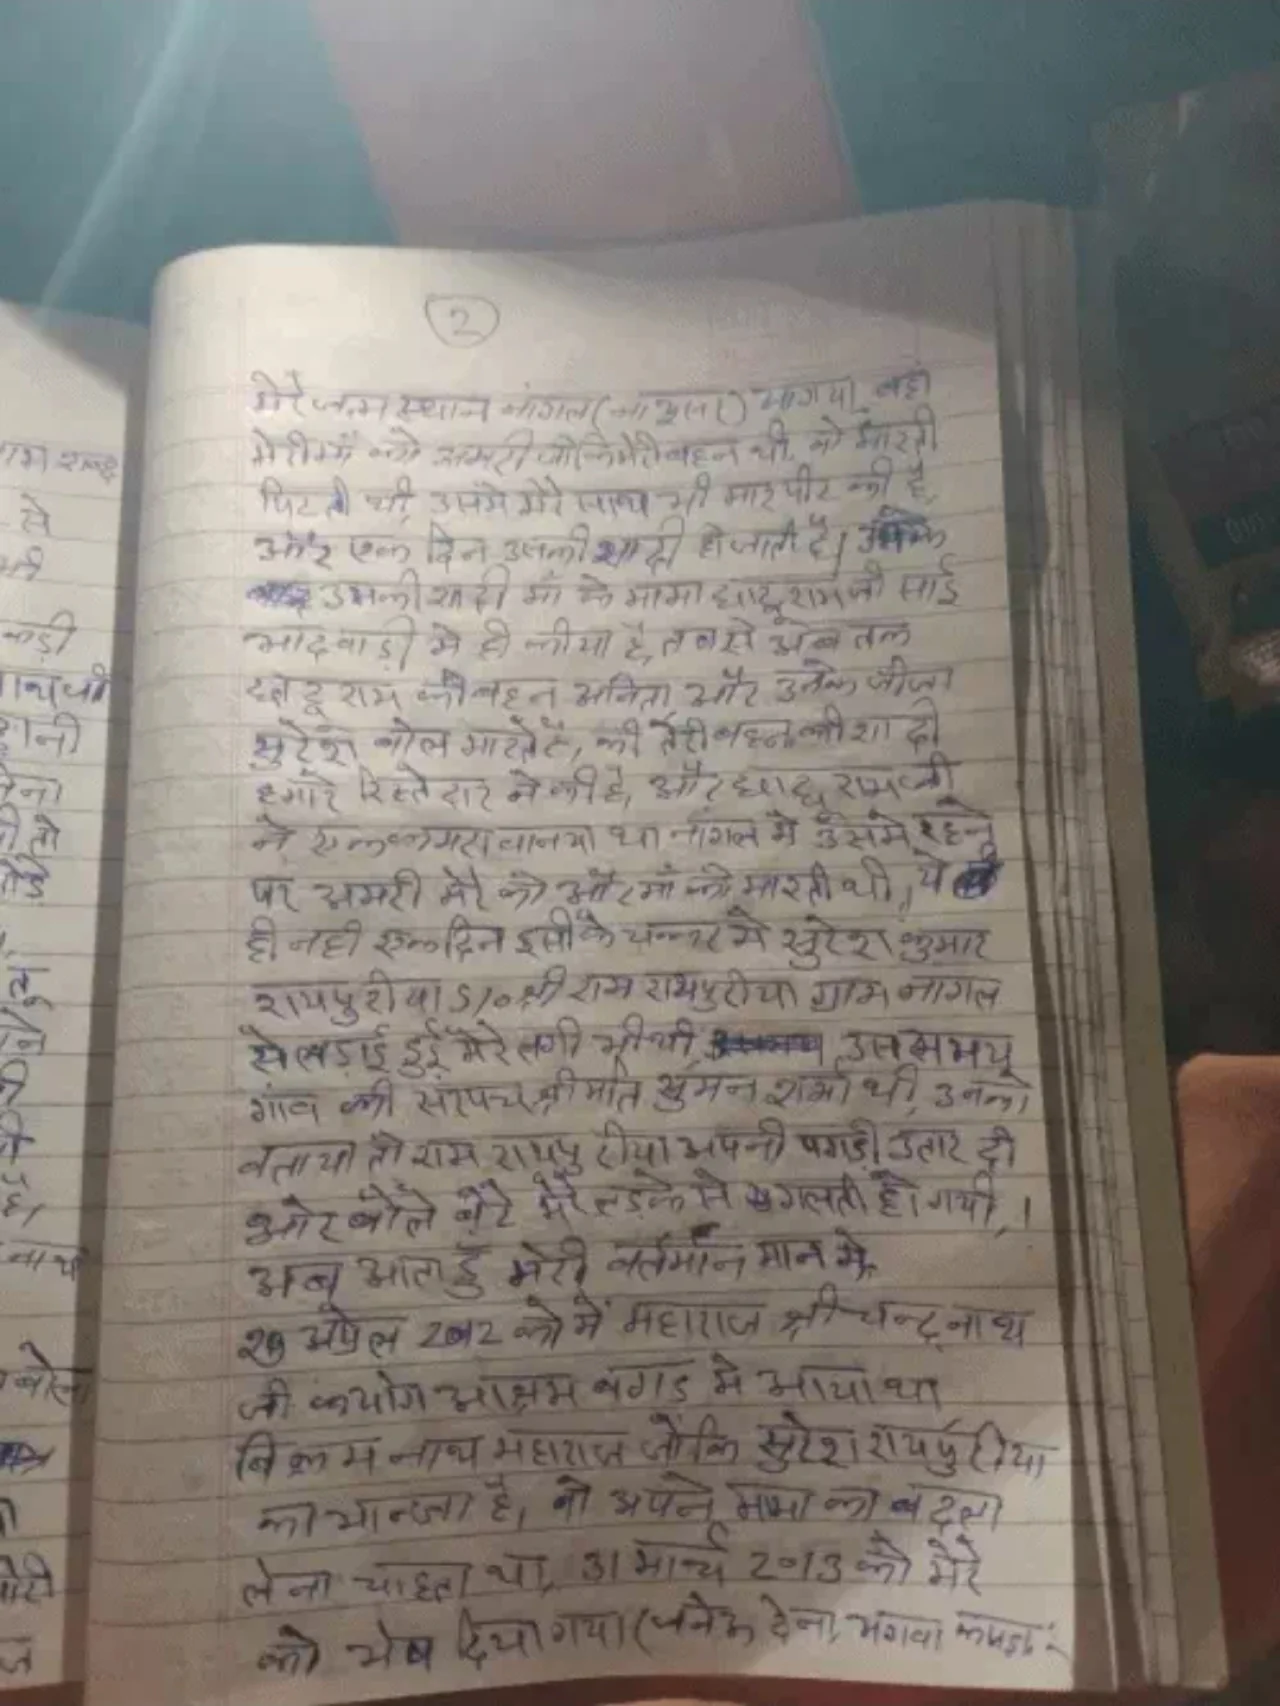 2
मेरे जन्म स्थान नांगल ( ) आ गया, वहां
मेरी माँ को अमरी जोकि मेरी बहन थी, वो मारती
पिटती थी, उसने मेरे साथ भी मारपीट की है,
और एक दिन उसकी शादी हो जाती है। उसके
उसकी शादी माँ के मामा राम जी साई
भादवाड़ी मे ही कीया है, तब से अब तक
राम की बहन अनिता और उनके जीजा
सुरेश बोल मारते है, की तेरी बहन की शादी
हमारे रिस्तेदार ने की है, और राम जी
ने एक कमरा बानया था नांगल मे उसमे रहने
पर अमरी मेरे को और माँ को मारती थी, ये
ही नही एक दिन इसी के चक्कर मे सुरेश कुमार
रायपुरीया S/o श्री राम रायपुरीया ग्राम नागल
से लड़ाई हुई मेरे लगी भी थी, उस समय
गांव की सरपंच श्रीमति सुमन शर्मा थी, उनको
बताया तो राम रायपुरीया अपनी पगड़ी उतार दी
और बोले बेटे मेरे लड़के से गलती हो गयी,।
अब आता हूँ मेरी वर्तमान मान मे,
अप्रेल 2012 को में महाराज श्री चन्द्रनाथ
जी के योग आश्रम बगड़ मे आया था
विक्रम नाथ महाराज जोकि सुरेश रायपुरीया
का भान्जा है, वो अपने मामा का बदला
लेना चाहता था, 31 मार्च 2013 को मेरे
को भेष दिया गया (जनेऊ देना, भगवा कपड़ा